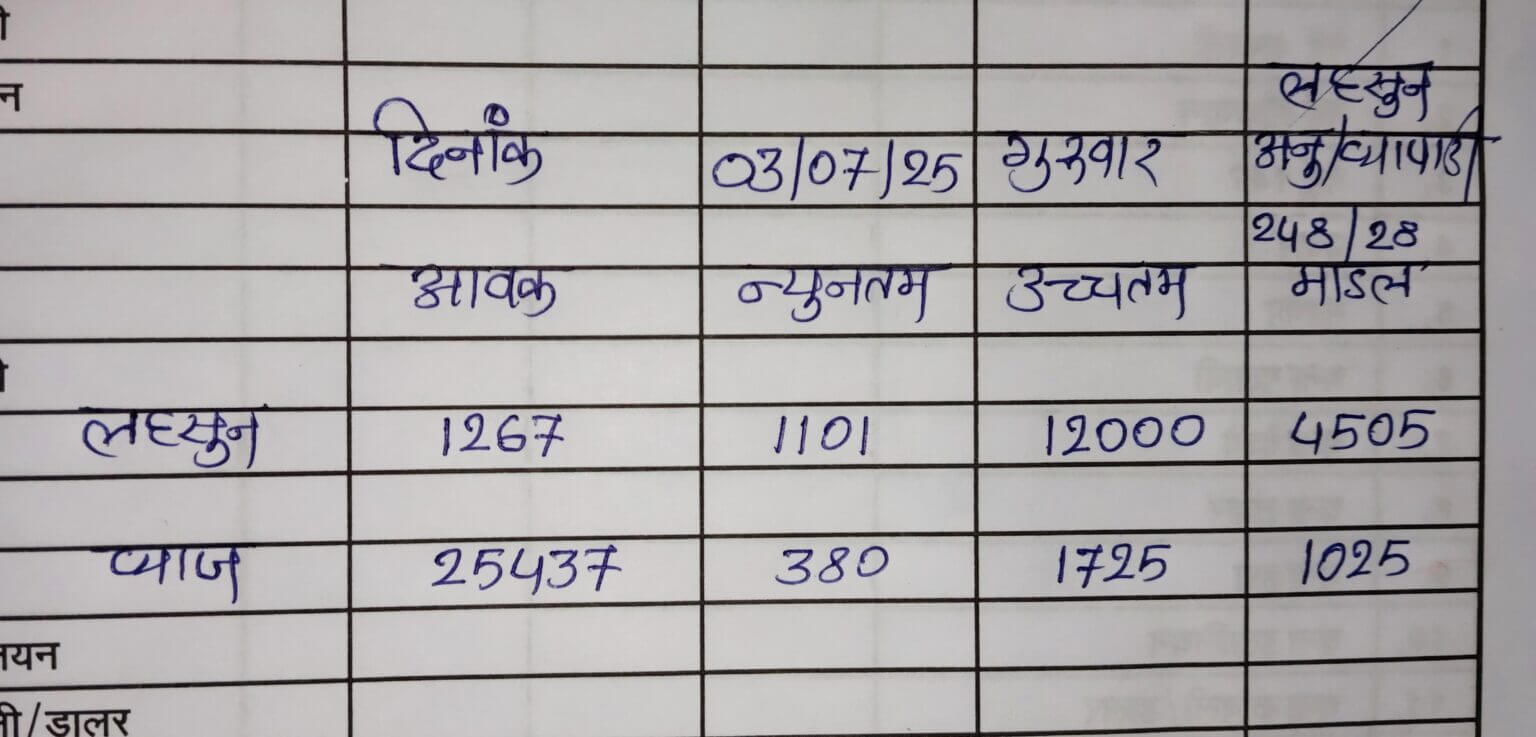 लहसुन
दिनांक 03/07/25 गुरुवार अनु/व्यापारी
248/28
आवक न्युनतम उच्चतम माडल
लहसुन 1267 1101 12000 4505
प्याज 25437 380 1725 1025
/डालर